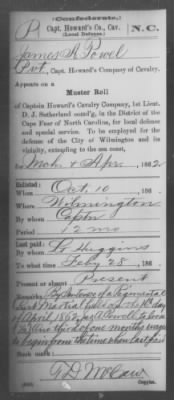 (Confederate.)
P Capt. Howard's Co., Cav. N.C.
(Local Defense.)
James A Powel
Pvt, Capt. Howard's Company of Cavalry.
Appears on a
Muster Roll
of Captain Howard's Cavalry Company, 1st Lieut.
D. J. Sutherland com'd'g, in the District of the
Cape Fear of North Carolina, for local defense
and special service. To be employed for the
defense of the City of Wilmington and its
vicinity, extending to the sea coast,
for Mch & Apr, 1862.
Enlisted:
When Oct. 10, 186
Where Wilmington
By whom Captn
Period 12 mo
Last paid:
By whom Huggins
To what time Feby 28, 186
Present or absent Present
Remarks: By Sentence of a Regimental
Court Martial held on the 10th day
of April 1862, Jas A Powel to
one months wages
to begin from the time when last paid
Book mark:
Copyist.